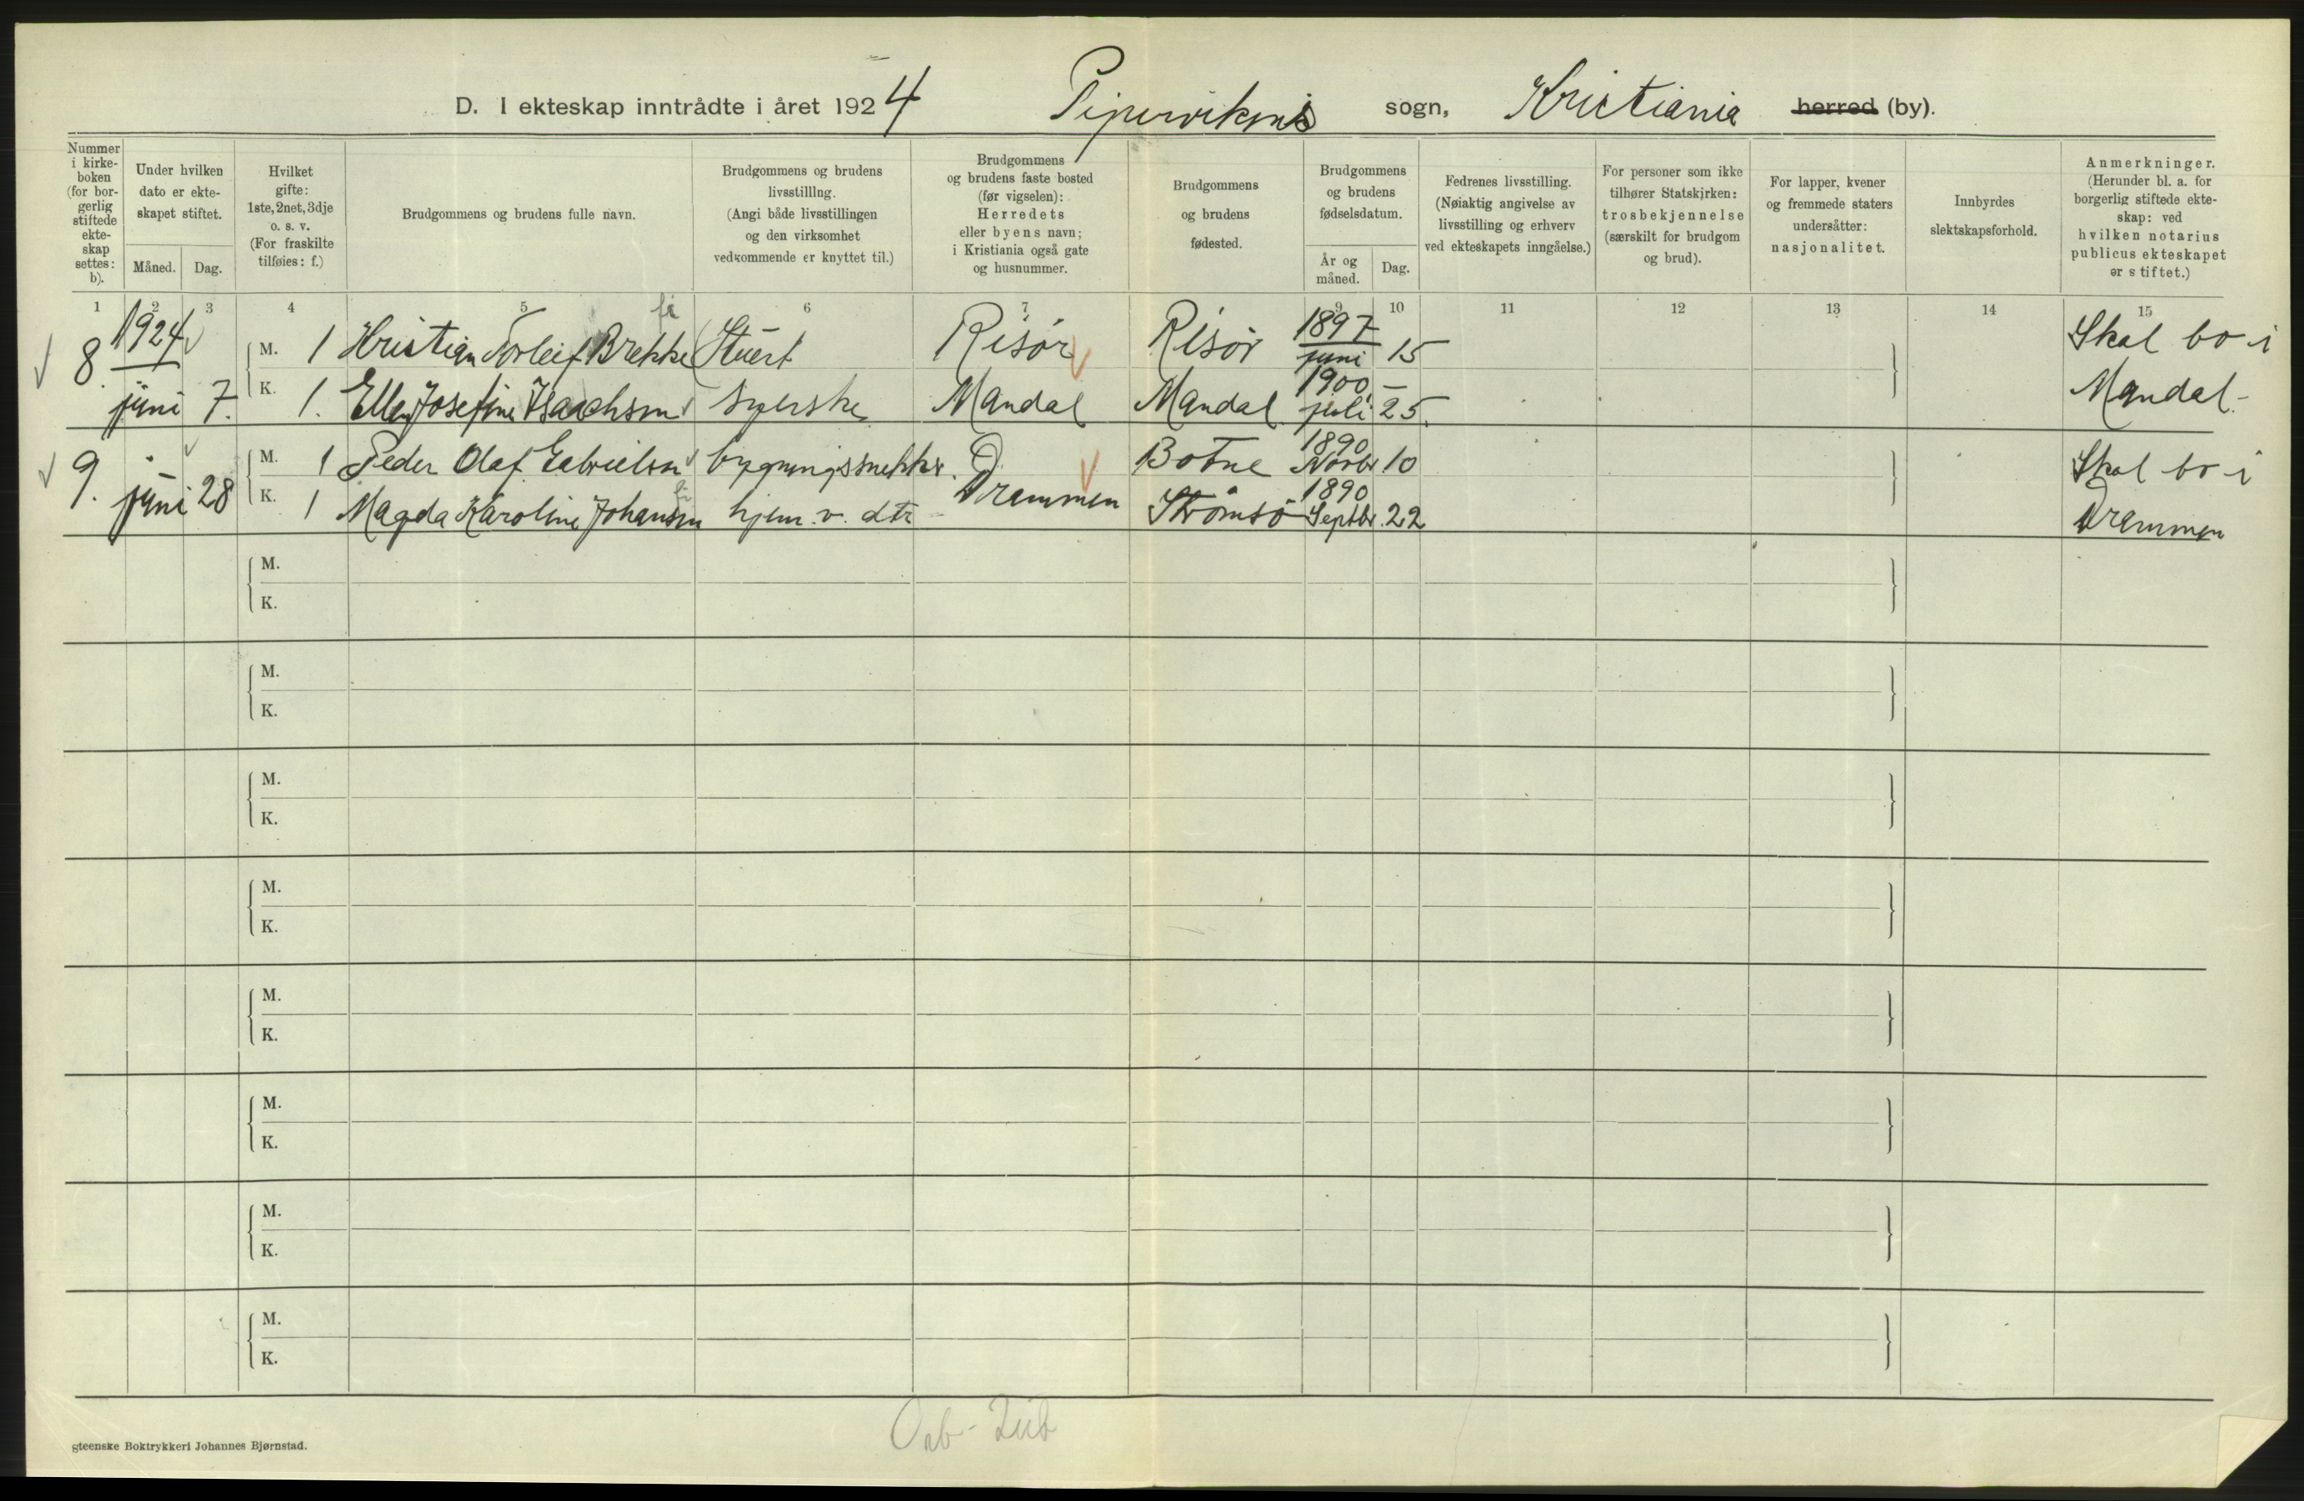 D. I ekteskap inntrådte i året 1924 Pipervikens sogn, Kristiania herred (by).
Nummer i kirke-boken (for bor-gerlig stiftede ekte-skap settes: b).
Under hvilken dato er ekte-skapet stiftet.
Måned. Dag.
Hvilket gifte: 1ste, 2net, 3dje o. s. v. (For fraskilte tilføies: f.)
Brudgommens og brudens fulle navn.
Brudgommens og brudens livsstilling. (Angi både livsstillingen og den virksomhet vedkommende er knyttet til.)
Brudgommens og brudens faste bosted (før vigselen): Herredets eller byens navn; i Kristiania også gate og husnummer.
Brudgommens og brudens fødested.
Brudgommens og brudens fødselsdatum.
År og måned. Dag.
Fedrenes livsstilling. (Nøiaktig angivelse av livsstilling og erhverv ved ekteskapets inngåelse.)
For personer som ikke tilhører Statskirken: trosbekjennelse (særskilt for brudgom og brud).
For lapper, kvener og fremmede staters undersåtter: nasjonalitet.
Innbyrdes slektskapsforhold.
Anmerkninger. (Herunder bl. a. for borgerlig stiftede ekte-skap: ved hvilken notarius publicus ekteskapet er stiftet.)
1 2 3 4 5 6 7 8 9 10 11 12 13 14 15
8. 1924 M. 1 Kristian Torleif Brekke Stuert Risør Risør 1897 juni 15 Skal bo i
juni 7. K. 1. Ellen Josefine Isaachsen syerske Mandal Mandal 1900 juli 25. Mandal.
9. M. 1 Peder Olaf Gabrielsen bygningssnekker. Botne 1890 Novbr 10 Skal bo i
juni 28 K. 1 Magda Karoline Johansen hjem. v. Drammen Strømsø 1890 Septbr. 22 Drammen
M.
K.
M.
K.
M.
K.
M.
K.
M.
K.
M.
K.
M.
K.
M.
K.
gteenske Boktrykkeri Johannes Bjørnstad.